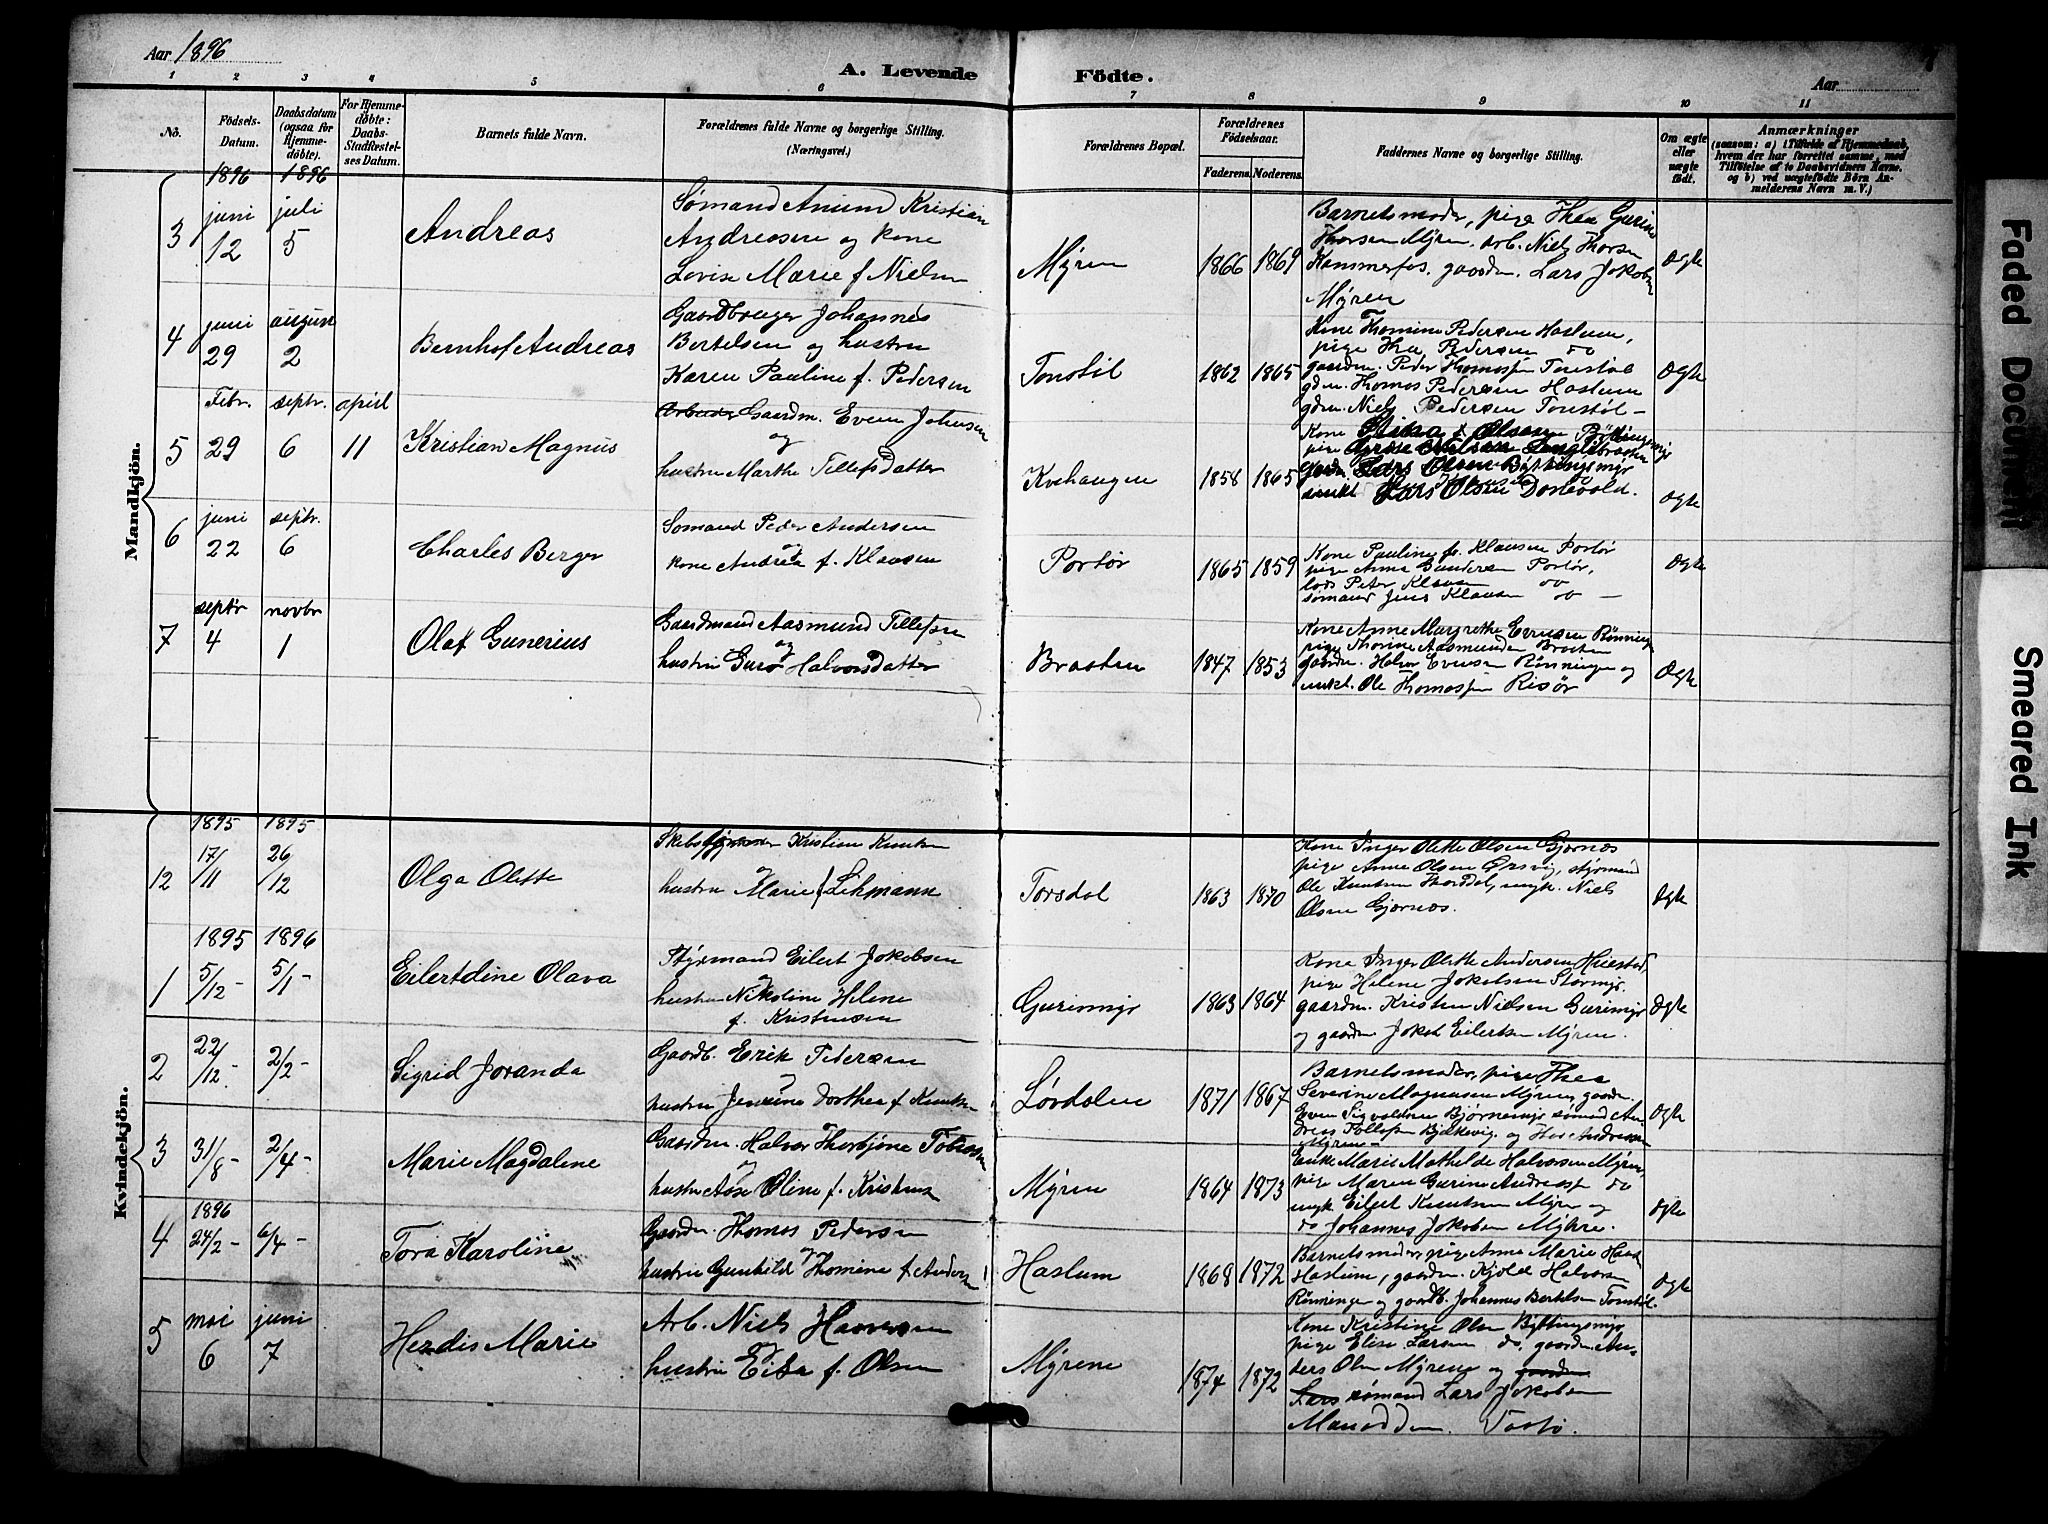 Aar 1896
A. Levende Födte.
Aar
1 2 3 4 5 6 7 8 9 10 11
No.
Födsels-Datum.
Daabsdatum (ogsaa for Hjemme-döbte).
For Hjemme-döbte: Daabs-Stadfæstel-ses Datum.
Barnets fulde Navn.
Forældrenes fulde Navne og borgerlige Stilling. (Næringsvei.)
Forældrenes Bopæl.
Forældrenes Födselsaar.
Faderens. Moderens.
Faddernes Navne og borgerlige Stilling.
Om ægte eller uægte födt.
Anmærkninger
(saasom: a) i Tilfælde af Hjemmedaab, hvem der har forrettet samme, med Tilföielse af to Daabsvidners Navne, og b) ved uægtefödte Börn An-melderens Navn m. V.)
Mandkjön.
1896 1896
3 juni 12 juli 5 Andreas
Sømand Anund Kristian
Andreasen og kone
Lovise Marie f. Nielsen
Myren 1866 1869
Barnets moder, pige Thea Gurine
Thorsen Myren, arb. Niels Thorsen
Kammerfos, gaardm. Lars Jokobsen
Myren
Ægte
4 juni 29 august 2 Bernhof Andreas
Gaardbruger Johannes
Bertelsen og hustru
Karen Pauline f. Pedersen
Tonstöl 1862 1865
Kone Thomine Pedersen Haslum,
pige Thea Pedersen do
gaardm. Peder Thomassen Tonstöl
gdm. Thomas Pedersen Haslum
gdm. Niels Pedersen Tonstøl –
Ægte
5 Febr. 29 septr. 6 april 11 Kristian Magnus
Arbeider Gaardm. Even Johnsen
og
hustru Marthe Tellefsdatter
Kvehaugen 1858 1865
Kone Olsen
pige
Lars Olsen
Lars Olsen Donevold.
Ægte
6 juni 22 septr. 6 Charles Berger
Sømand Peder Andersen
og
kone Andrea f. Klausen
Portør 1865 1859
Kone Pauline f. Klausen Portør
pige Anna Gundersen Portør,
lods Peter Klausen do
sømand Jens Klausen do –
Ægte
7 septr 4 novbr 1 Olaf Gunerius
Gaardmand Aasmund Tellefsen
og
hustru Guro Halvorsdatter
Braaten 1847 1853
Kone Anne Margrethe Evensen Rønningen
pige Thomine Aasmundsen Braaten
gaardm. Halvor Evensen Rønningen og
unkl. Ole Thomassen Risör
Ægte
Kvindekjön.
1895 1895
12 17/11 26/12 Olga Olette
Kristian Knutsen
og
hustru Marie f. Lehmann
Torsdal 1863 1870
Kone Inger Olette Olsen Gjernes
pige Anne Olsen Ørsvig, styrmand
Ole Knutsen Thorsdal, ungk. Niels
Olsen Gjernes.
Ægte
1895 1896
1 5/12 – 5/1 – Eilertdine Olava
Styrmand Eilert Jokobsen
og
hustru Nikoline Helene
f. Kristensen
Gurimyr 1863 1864
Kone Inger Olette Andersen
pige Helene Jokobsen Stormyr.
gaardm. Kristen Nielsen Gurimyr
og gaardm. Jokob Eilertsen Myren.
Ægte
2 22/12 – 2/2 – Sigrid Joranda
Gaardb. Erik Pedersen
og
hustru Jensine Dorthea f. Knutsen
Lövdalen 1871 1867
Barnets moder, pige Thea
Severine Magnusen Myren, gaardm.
Even Sigvaldsen Bjørnemyr sømand An-
dreas Tollefsen Bjelkevig. og Andreassen
Myren –
Ægte
3 31/8 – 2/4 – Marie Magdalene
Gaardm. Halvor Thorbjörn Tobiassen
og
hustru Aase Oline f. Kristensen
Myren 1864 1873
Enke Marie Mathilde Halvorsen Myren,
pige Maren Gurine Andreass. do
ungk Eilert Knutsen Myren og
do Johannes Jokobsen Myhre.
Ægte
1896
4 24/2 – 6/4 – Tora Karoline
Gaardm. Thomas Pedersen
og
hustru Gunhild Thomine f. Andersen
Haslum 1868 1872
Barnets moder, pige Anne Marie
Haslum, gaardm. Kjöld Halvorsen
Rønningen og gaardb. Johannes Bertelsen Tonstöl.
Ægte
5 mai 6 juni 7 Herdis Marie
Arb. Niels Halvorsen
og
hustru Elisa f. Olsen
Myrene 1874 1872
Kone Kristine Olsen Byttingsmyr
pige Elise Larsen do. gaardm. An-
ders Olsen Myrene og gaardm.
Lars sømand Lars Jokobsen
Manodden. Tostö.
Faded Document
Smeared Ink